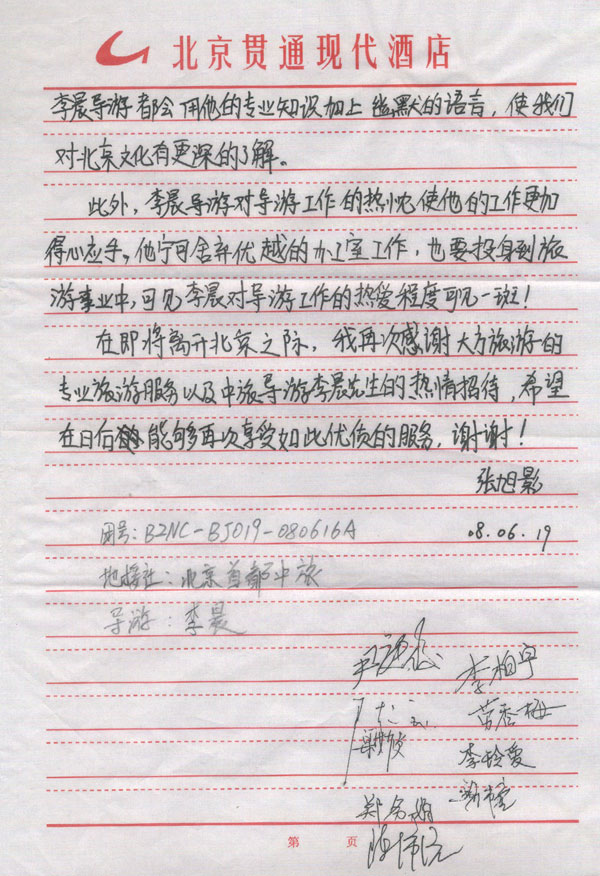 北京贯通现代酒店
李晨导游都会用他的专业知识加上幽默的语言，使我们
对北京文化有更深的了解。
此外，李晨导游对导游工作的热忱使他的工作更加
得心应手，他宁可舍弃优越的办工室工作，也要投身到旅
游事业中，可见李晨对导游工作的热爱程度可见一斑！
在即将离开北京之际，我再次感谢大方旅游的
专业旅游服务以及中旅导游李晨先生的热情招待，希望
在日后能够再次享受如此优质的服务，谢谢！
张旭影
团号：BZNC-BJ019-080616A 08.06.19
地接社：北京首都中旅
导游：李晨
李柏宇
苗香梅
李玲爱
第 页